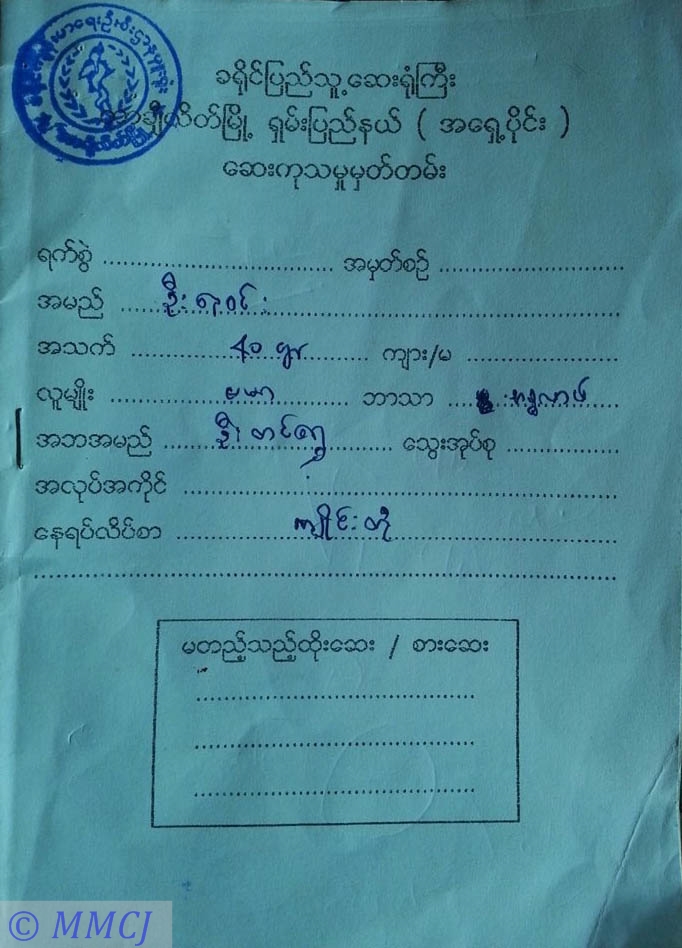 ခရိုင်ပြည်သူ့ဆေးရုံကြီး
တာချီလိတ်မြို့ ရှမ်းပြည်နယ် ( အရှေ့ပိုင်း )
ဆေးကုသမှုမှတ်တမ်း
ရက်စွဲ ........................................ အမှတ်စဉ် ................................
အမည် ..... ဦး
အသက် ..... ၄၀ ..... ကျား/မ ..........................
လူမျိုး ..... ဗမာ ..... ဘာသာ .....
အဘအမည် ..... ဦး ..... သွေးအုပ်စု ....................
အလုပ်အကိုင် ............................................................................
နေရပ်လိပ်စာ ..... ကျိုင်းတုံ
မတည့်သည့်ထိုးဆေး / စားဆေး
© MMCJ